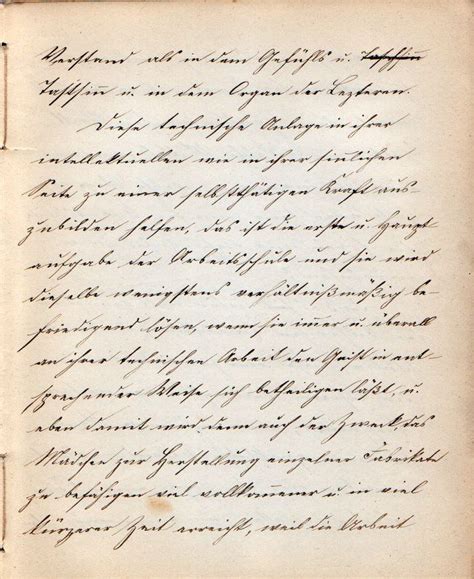 Verstand als in dem Gefühls u. Tastsinn
Tastsinn u. in dem Organ der Lezteren.
Diese technische Anlage in ihrer
intellektuellen wie in ihrer sinlichen
Seite zu einer selbstthätigen Kraft aus-
zubilden helfen, das ist die erste u. Haupt-
aufgabe der Arbeitsschule und sie wird
dieselbe wenigstens verhältnißmäßig be-
friedigend lösen, wenn sie immer u. überall
an ihrer technischen Arbeit den Geist in ent-
sprechender Weise sich betheiligen läßt, u.
eben damit wird denn auch der Zweck, das
Mädchen zur Herstellung einzelner Fabrikate
zu befähigen viel vollkommener u. in viel
kürzerer Zeit erreicht, weil die Arbeit